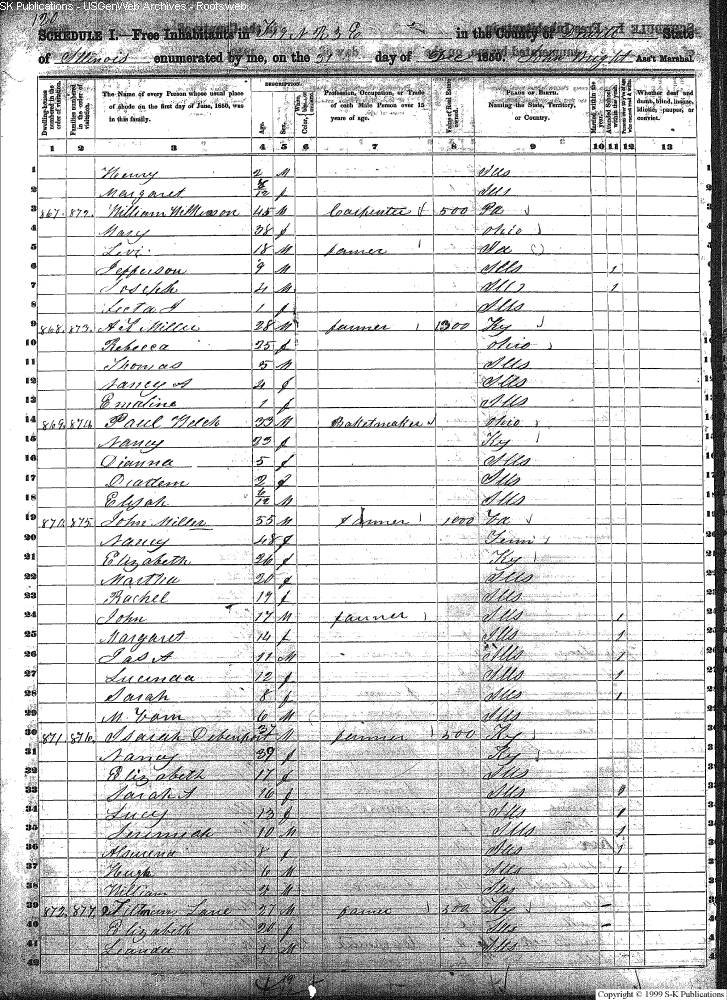 SK Publications - USGenWeb Archives - Rootsweb
SCHEDULE I.—Free Inhabitants in in the County of State
of Illinois enumerated by me, on the 31 day of 1850. John Wright Ass't Marshal.
Dwelling-houses numbered in the order of visitation. Families numbered in the order of visitation. The Name of every Person whose usual place of abode on the first day of June, 1850, was in this family. DESCRIPTION. Age. Sex. Color, Profession, Occupation, or Trade of each Male Person over 15 years of age. Value of Real Estate owned. PLACE OF BIRTH. Naming the State, Territory, or Country. Married within the year. Attended School within the year. Whether deaf and dumb, blind, insane, idiotic, pauper, or convict.
1 2 3 4 5 6 7 8 9 10 11 12 13
1 Henry 2 M Ills
2 Margaret f Ills
3 867 872 William Wilkerson 45 M Carpenter 500 Pa
4 Mary 38 f Ohio
5 Levi 18 M farmer
6 Jefferson 9 M Ills 1
7 Joseph 4 M Ills 1
8 1 f Ills
9 868 873 Miller 28 M farmer 1300 Ky
10 Rebecca 25 f Ohio
11 Thomas 5 M Ills
12 Nancy A 4 f Ills
13 Emaline 1 f Ills
14 869 874 Paul Welch 33 M Basketmaker Ohio
15 Nancy 23 f Ky
16 Dianna 5 f Ills
17 Diadem 2 f Ills
18 Elijah 6/12 M Ills
19 870 875 John Miller 55 M farmer 1000 Va
20 Nancy 48 f Tenn
21 Elizabeth 26 f Ky
22 Martha 20 f Ills
23 Rachel 19 f Ills
24 John 17 M farmer Ills 1
25 Margaret 14 f Ills 1
26 Jas A 11 M Ills 1
27 Lucinda 12 f Ills 1
28 Sarah 8 f Ills 1
29 6 M Ills
30 871 876 Isaiah Debenport 37 M farmer 500 Ky
31 Nancy 39 f Ky
32 Elizabeth 17 f Ills
33 Sarah A 16 f Ills 1
34 Lucy 13 f Ills 1
35 Jeremiah 10 M Ills 1
36 Almira 8 f Ills 1
37 Hugh 6 M Ills 1
38 William 2 M Ills
39 872 877 Lane 27 M farmer 200 Ky
40 Elizabeth 20 f Ills
41 Leander 1 M Ills
42
Copyright © 1999 S-K Publications